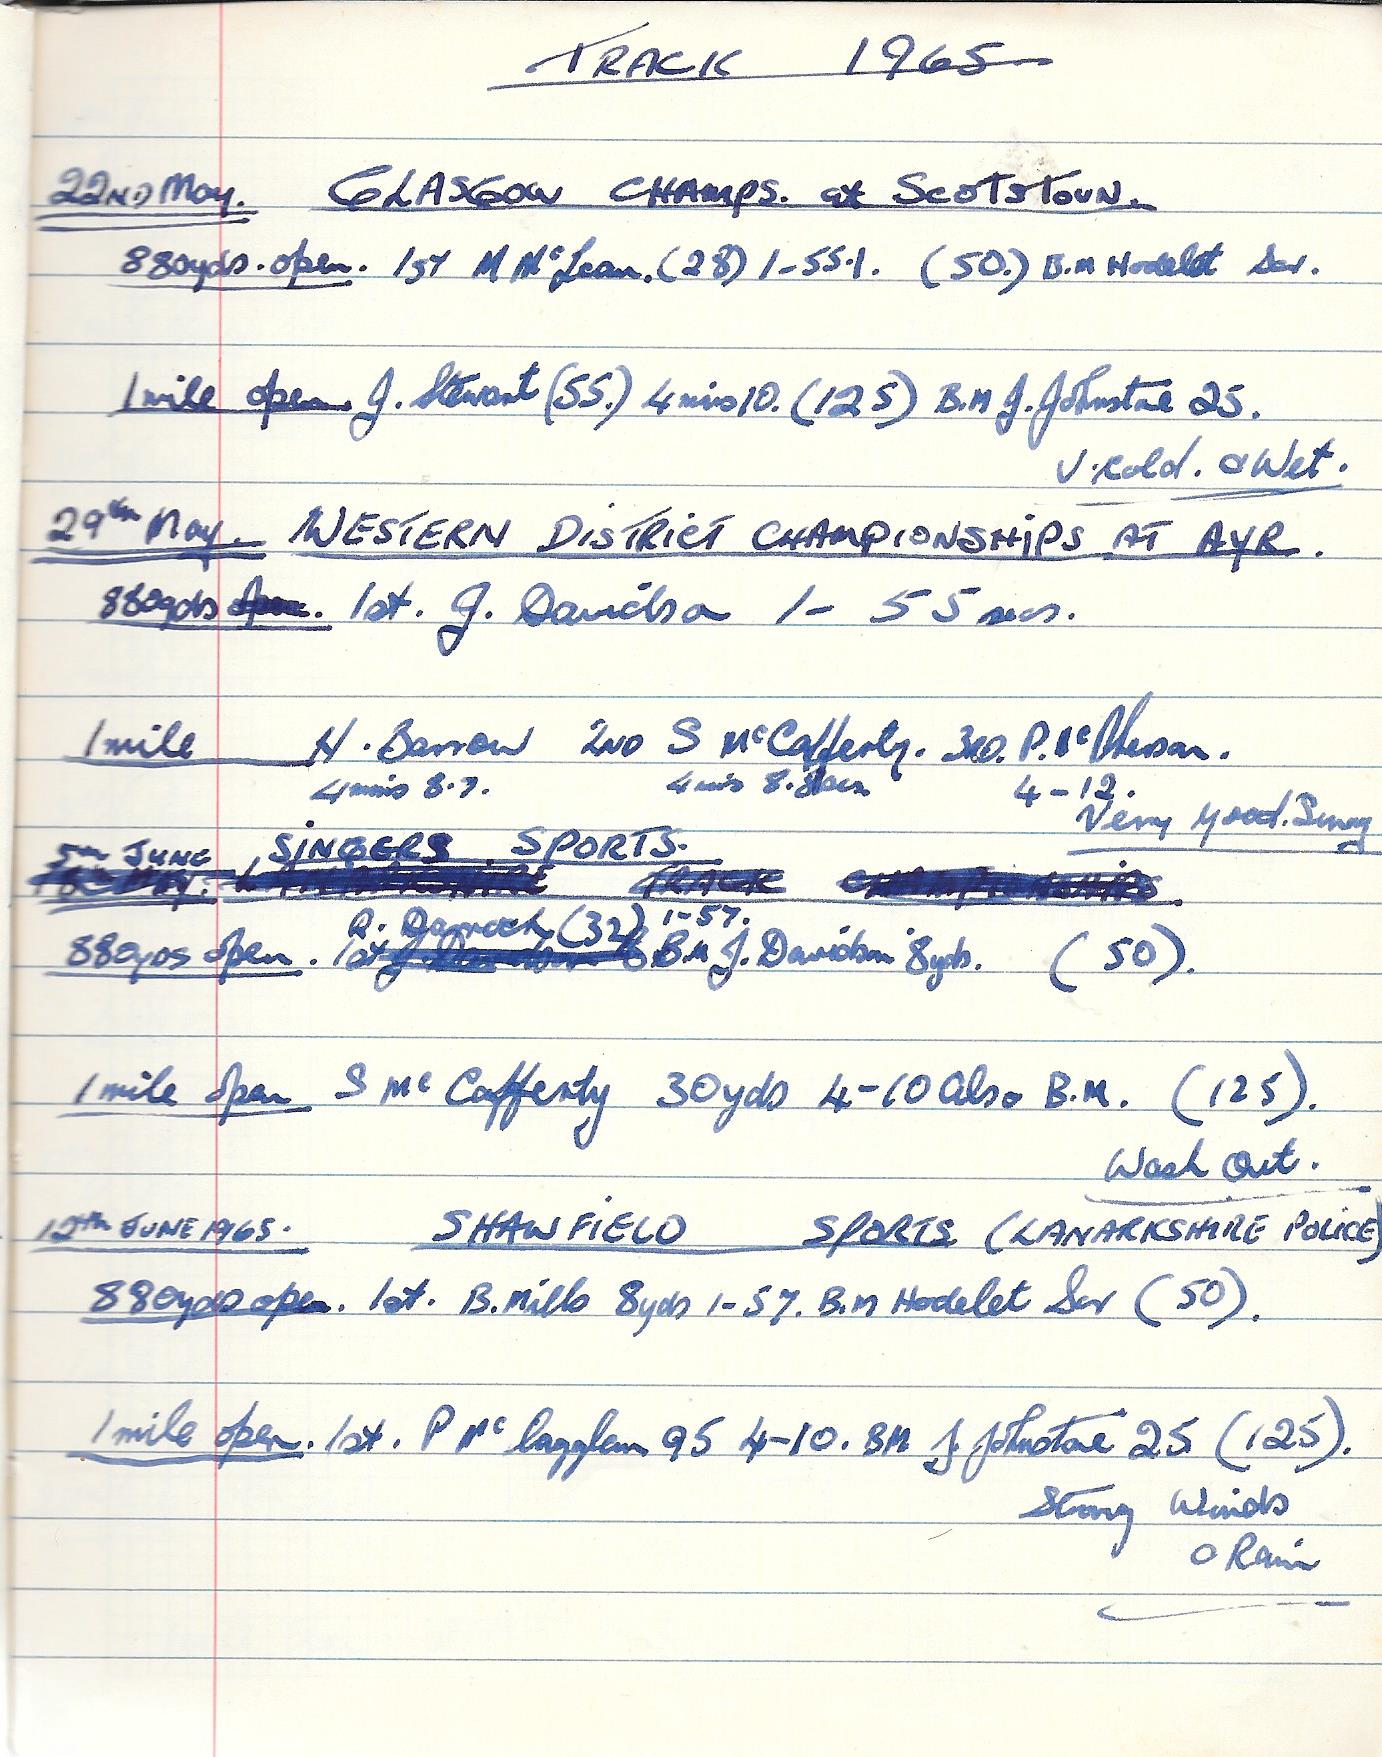 TRACK 1965
22ND May. GLASGOW CHAMPS. at SCOTSTOUN.
880yds. open. 1ST M McLean. (28) 1-55.1. (50.) B.M Hodelet Scr.
1 mile open. J. Stewart (55.) 4 mins 10. (125) B.M J. Johnstone 25.
V. cold. & Wet.
29th May. WESTERN DISTRICT CHAMPIONSHIPS AT AYR.
880yds open. 1st. J. Davidson 1- 55 secs.
1 mile H. Barrow 2ND S McCafferty. 3RD. P. McPherson.
4 mins 8.7. 4 mins 8.8 4-12.
Very good. Sunny
5TH JUNE SINGERS SPORTS.
TRACK CHAMPIONSHIPS.
R. Darroch (32) 1-57.
880yds open. 1st B.M J. Davidson 8yds. (50).
1 mile open S McCafferty 30yds 4-10 also B.M. (125).
Wash Out.
12th JUNE 1965. SHAWFIELD SPORTS (LANARKSHIRE POLICE)
880yds open. 1st. B. Mills 8yds 1-57. B.M Hodelet Scr (50).
1 mile open. 1st. P 95 4-10. BM J Johnstone 25 (125).
Strong Winds
& Rain